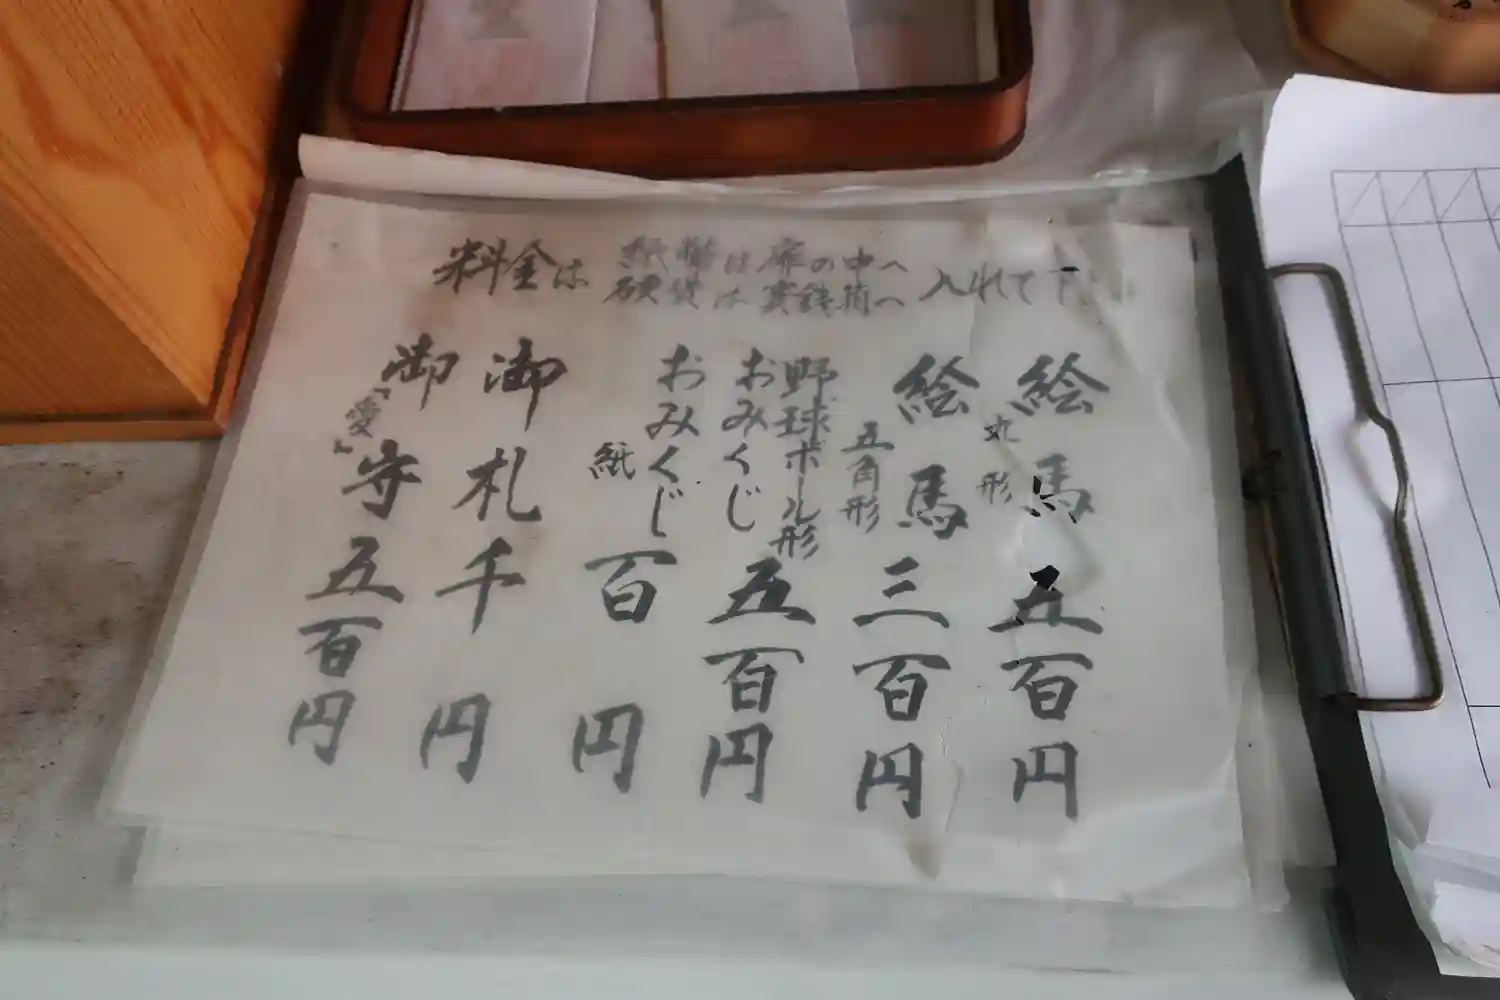 料金は 紙幣は扉の中へ 硬貨は賽銭箱へ 入れて下
絵馬 丸形 五百円
絵馬 五角形 三百円
野球ボール形
おみくじ 五百円
おみくじ 紙 百円
御札 千円
御守 「愛」 五百円